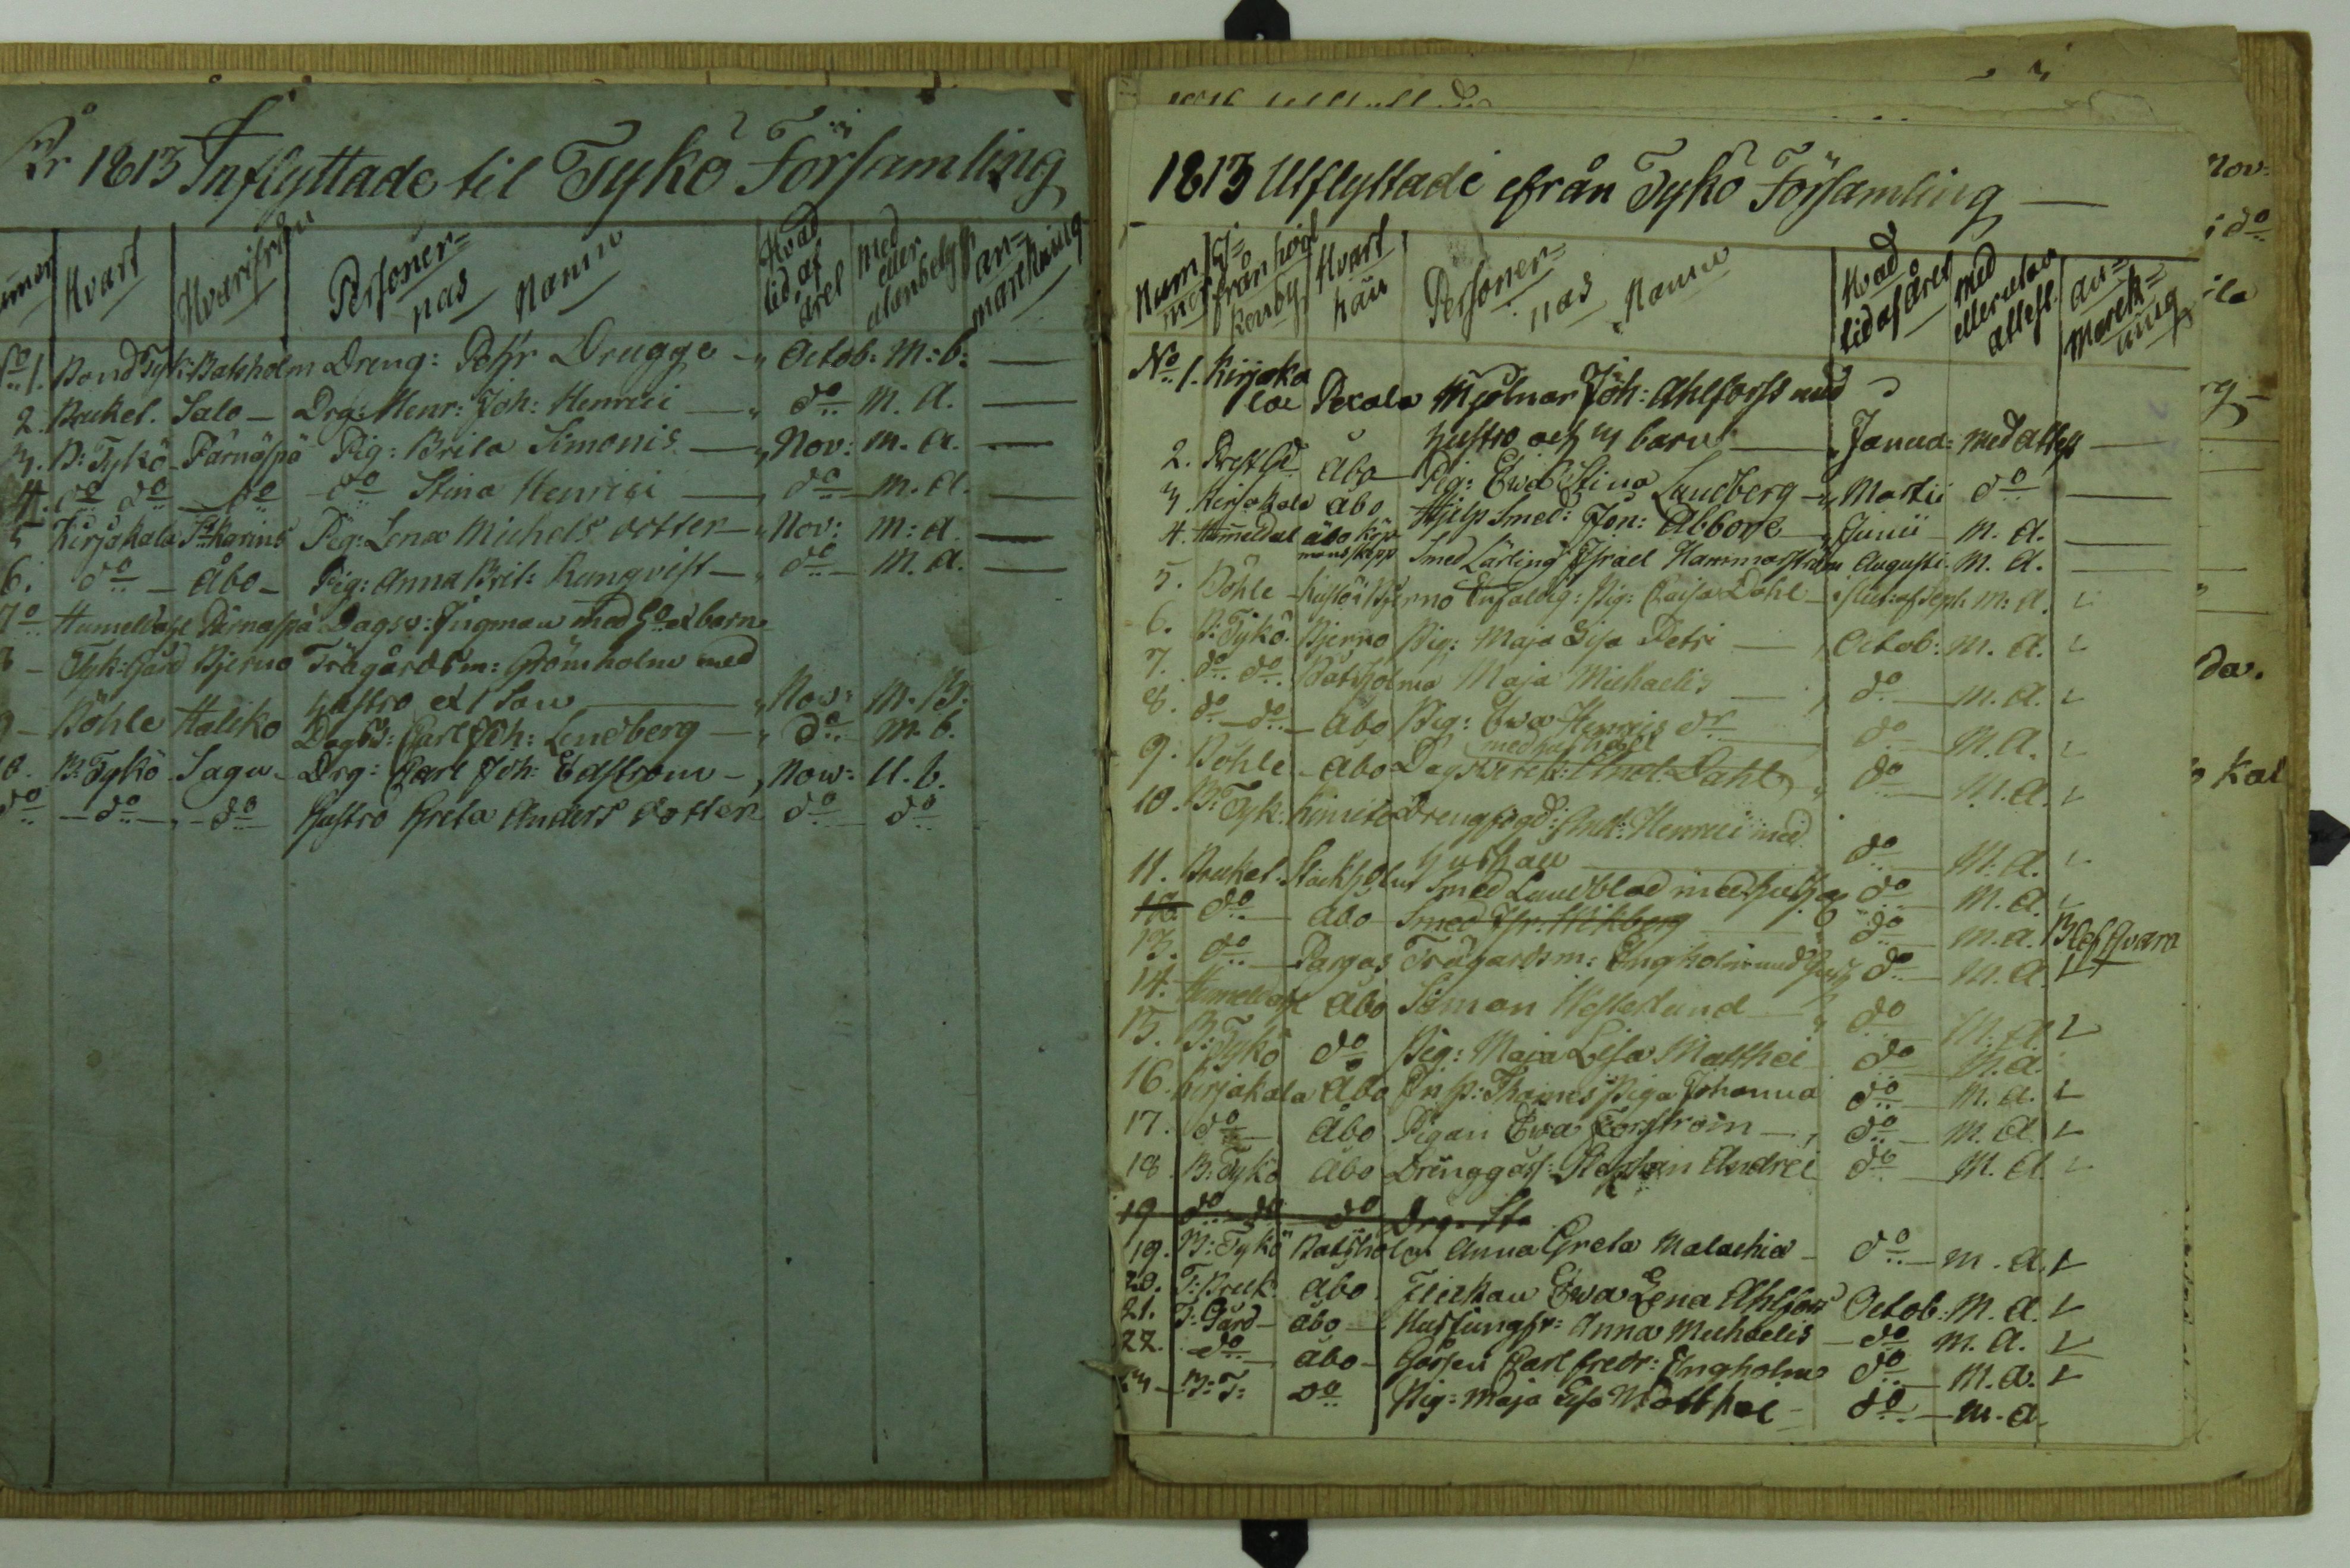 År 1813 Inflyttade til Tykö Församling
Hvart Hvarifrån Personer= nas Namn Hvad tid af året med eller utan betyg an= märkning
1. Bond Tyk: Batsholm Dreng: Pehr Drugge — Octob: M: b: —
2. Bruket. Salo — Drg: Henr: Joh: Henrici — do M. A. —
3. B: Tykö Pärnäspä Pig: Brita Simonis — Nov: m. a. —
4. do do — do — do Stina Henrici — do — M. A. —
5 Kirjakala St Karins Pig: Lena Michels dotter — Nov: M: a. —
6. do — Åbo — Pig: Anna Brit: Rungvist — do — M. a. —
7 Humeldahl Pärnäspä Dagsv: Ingman med h:o ex barn
8 — Tyk: Gård Bjerno Trägårdsm: Grömholm med
hustro ex 1 Son — Nov: M. B:
9 — Böhle Haliko Dagsv: Carl Joh: Lindberg — do — M. b.
10. B: Tykö Sagu — Drg: Carl Joh: Edström — Now: U. b.
do — do — do Hustro Greta Anders dotter do do
1813 Utflyttade ifrån Tykö Församling —
Num mer ifrån hvad för by Hvart hän Personer= nas Namn Hvad tid af året med eller utan attest. an= märk= ning
No 1. Kirjaka
la Pexala Mjölnar Joh: Ahlforss med
hustro och 4 barn — Janua: med attest —
2. Prestgd Åbo — Pig: Ewa Stina Lundberg — Martii do —
3 Kirjakala Åbo Hjelp Smed: Jon: Abbore — Junii — M. A. —
4. Humeldal Åbo Köp
mans Kopp Smed Lärling Israel Hammarström Augusti. M. A. —
5. Böhle — Kustö i Bjerno Enfaldig: Pig: Caisa Dahl — slut: af Sept. M: A.
6. B: Tykö. Bjerno Pig: Maja Lisa Petri — Octob: M. A.
7. do do Batsholma Maja Michaelis — do — M. A.
8. do — do — Åbo Pig: Ewa Henrics dr — do M. A.
med hustro
9. Böhle — Åbo Dagsverck: Dahl do M. A.
10. B: Tyk: Kimito Drengfogd: Henrici med
hustru — do — M. A.
11. Bruket. Stockholm Smed Lundblad med hust: do — M. A.
12. do — Åbo Smed Wikberg — do — m. a. Blef qvar
13. do — Pargas Trägårdsm: Engholm med hust do — M. A.
14. Humeldahl Åbo Simon Westerlund do M. A.
15. B: Tykö do Pig: Maja Lisa Matthei do — M. A.
16. Kirjakala Åbo Insp: Thoms Piga Johanna do — M. A.
17. do — Åbo Pigan Ewa Forsström — do — M. A.
18 B: Tykö Åbo Drenggoss: Stephan Andrei do — M. A.
19 do do do Drg: Ste
19. B: Tykö Batsholm Anna Greta Malachia — do — m. A.
20. T: Bruk. Åbo Flickan Ewa Lena Ahlfors Octob: M. A.
21. T: Gård — Åbo — Husjungfr: Anna Michaelis — do M. A.
22. do — Åbo — Gossen Carl Fredr: Ingholm do — M. A.
23 — B: T: do Pig: Maja Lisa Matthei — do — M. A.